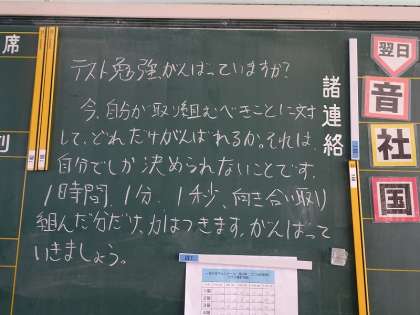 テスト勉強がんばっていますか？
今、自分が取り組むべきことに対
して、どれだけがんばれるか。それは、
自分でしか決められないことです。
1時間、1分、1秒、向き合い取り
組んだ分だけ、力はつきます。がんばって
いきましょう。
諸連絡
席
翌日
音
社
国